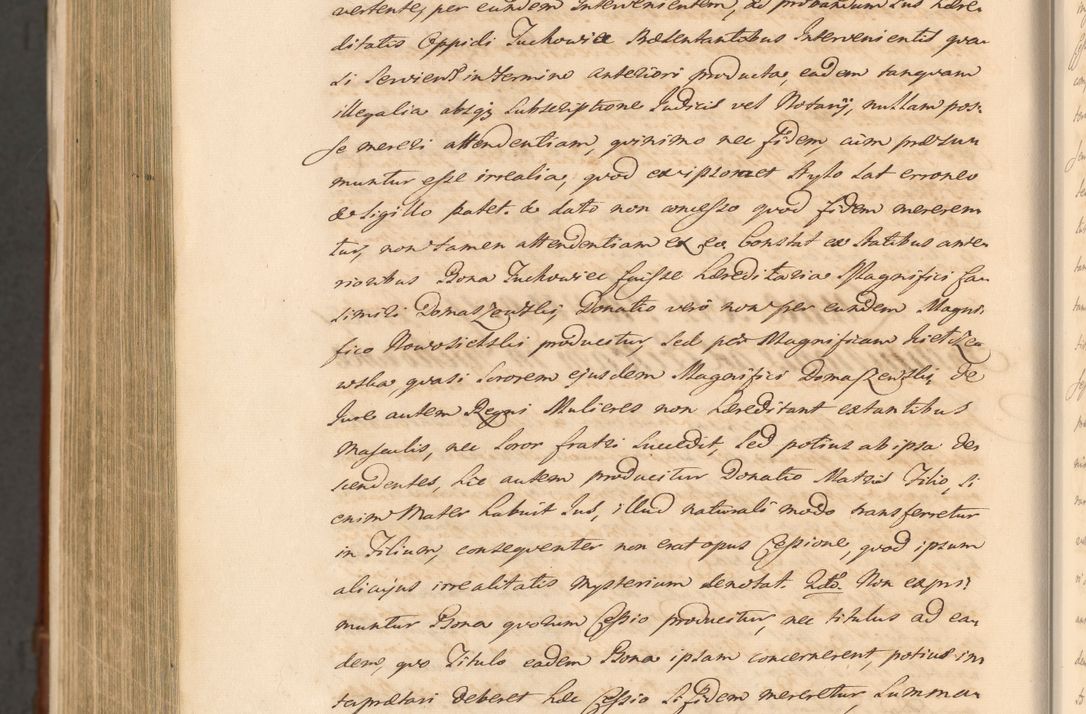 vertente, per eundem Intervenientem, ad probandum Jus hære-
ditatis Oppidi Tuchowiec Præsentantibus Intervenientis qua-
si Serviens in termino anteriori producta, eadem tanquam
illegalia absq; Subscriptione Judicis vel Notarij, nullam pos-
se mereri attendentiam, quinimo nec fidem, cùm præsu-
muntur esse irrealia, quod ex ipsomet Stylo Sat erroneo
& Sigillo patet. & dato non concesso quod fidem mereren
tur, non tamen attendentiam ex eo. Constat ex Statibus ante-
rioribus Bona Tuchowiec fuisse hæreditaria Magnifici Ca-
simiri Domaszewski, Donatio verò non per eundem Magni-
fico Nowosielski producitur, Sed per Magnificam
wska, quasi Sororem ejusdem Magnifici Domaszewski, De
Jure autem Regni Mulieres non hæreditant extantibus
Masculis, nec Soror fratri Succedit, Sed potius ab ipsa des
cendentes, hic autem producitur Donatio Matris Filio, Si
enim Mater habuit Jus, illud naturali modo transferretur
in Filium, consequenter non erat opus Cessione, quod ipsum
alicujus irrealitatis mysterium denotat. 2do. Non expri-
muntur Bona quorum Cessio producitur, nec titulus ad ea-
dem, quo Titulo eadem Bona ipsam concernerent, potius in
tapretari deberet hæc Cessio Si fidem mereretur, Summa-